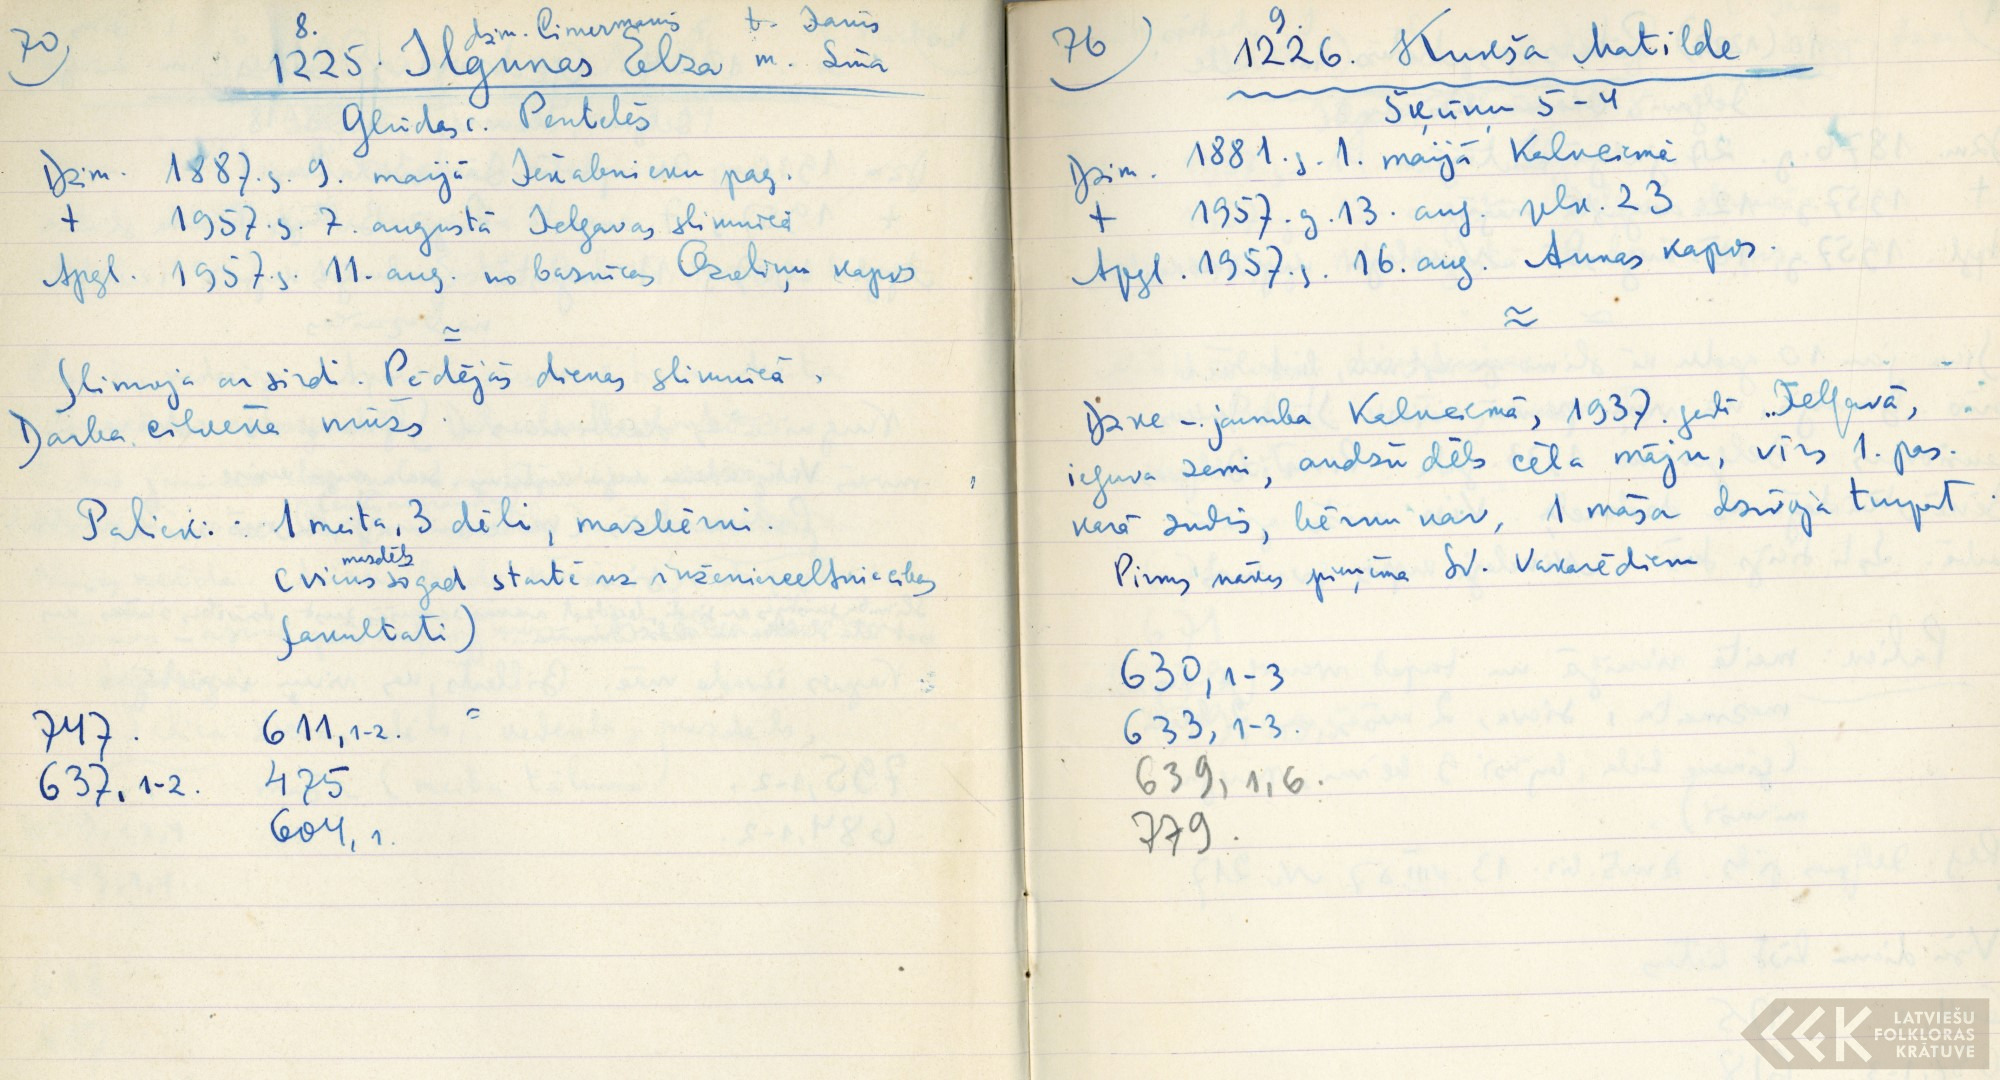 70)
8.
dzim. Cimermanis t. Janis
1225. Ilgunas Elza m. Līna
Glūdas c. Pentelēs
Dzim. 1887.g. 9. maijā Jēkabnieku pag.
+ 1957.g. 7. augustā Jelgavas slimnīcā
Apgl. 1957.g. 11. aug. no baznīcas Ozoliņu kapos
Slimoja ar sirdi. Pēdējās dienas slimnīcā.
Darba cilvēka mūžs.
Paliek: 1 meita, 3 dēli, mazbērni.
mazdēls
(viens šogad startē uz inženierceltniecības
fakultāti)
747. 611, 1-2.
637, 1-2. 475
604, 1.
76)
9.
1226. Kukša Matilde
Šķūņu 5-4
Dzim. 1881.g. 1. maijā Kalnciemā
+ 1957.g. 13. aug. plk. 23
Apgl. 1957.g. 16. aug. Annas kapos.
≈
Dzive - jaunība Kalnciemā, 1937. gadā Jelgavā,
ieguva zemi, audžu dēls cēla māju, vīrs 1. pas.
karā zudis, bērnu nav, 1 māsa dzīvoja turpat.
Pirms nāves pieņēma Sv. Vakarēdienu
630, 1-3
633, 1-3.
639, 1, 6.
779.
LATVIEŠU
FOLKLORAS
KRĀTUVE